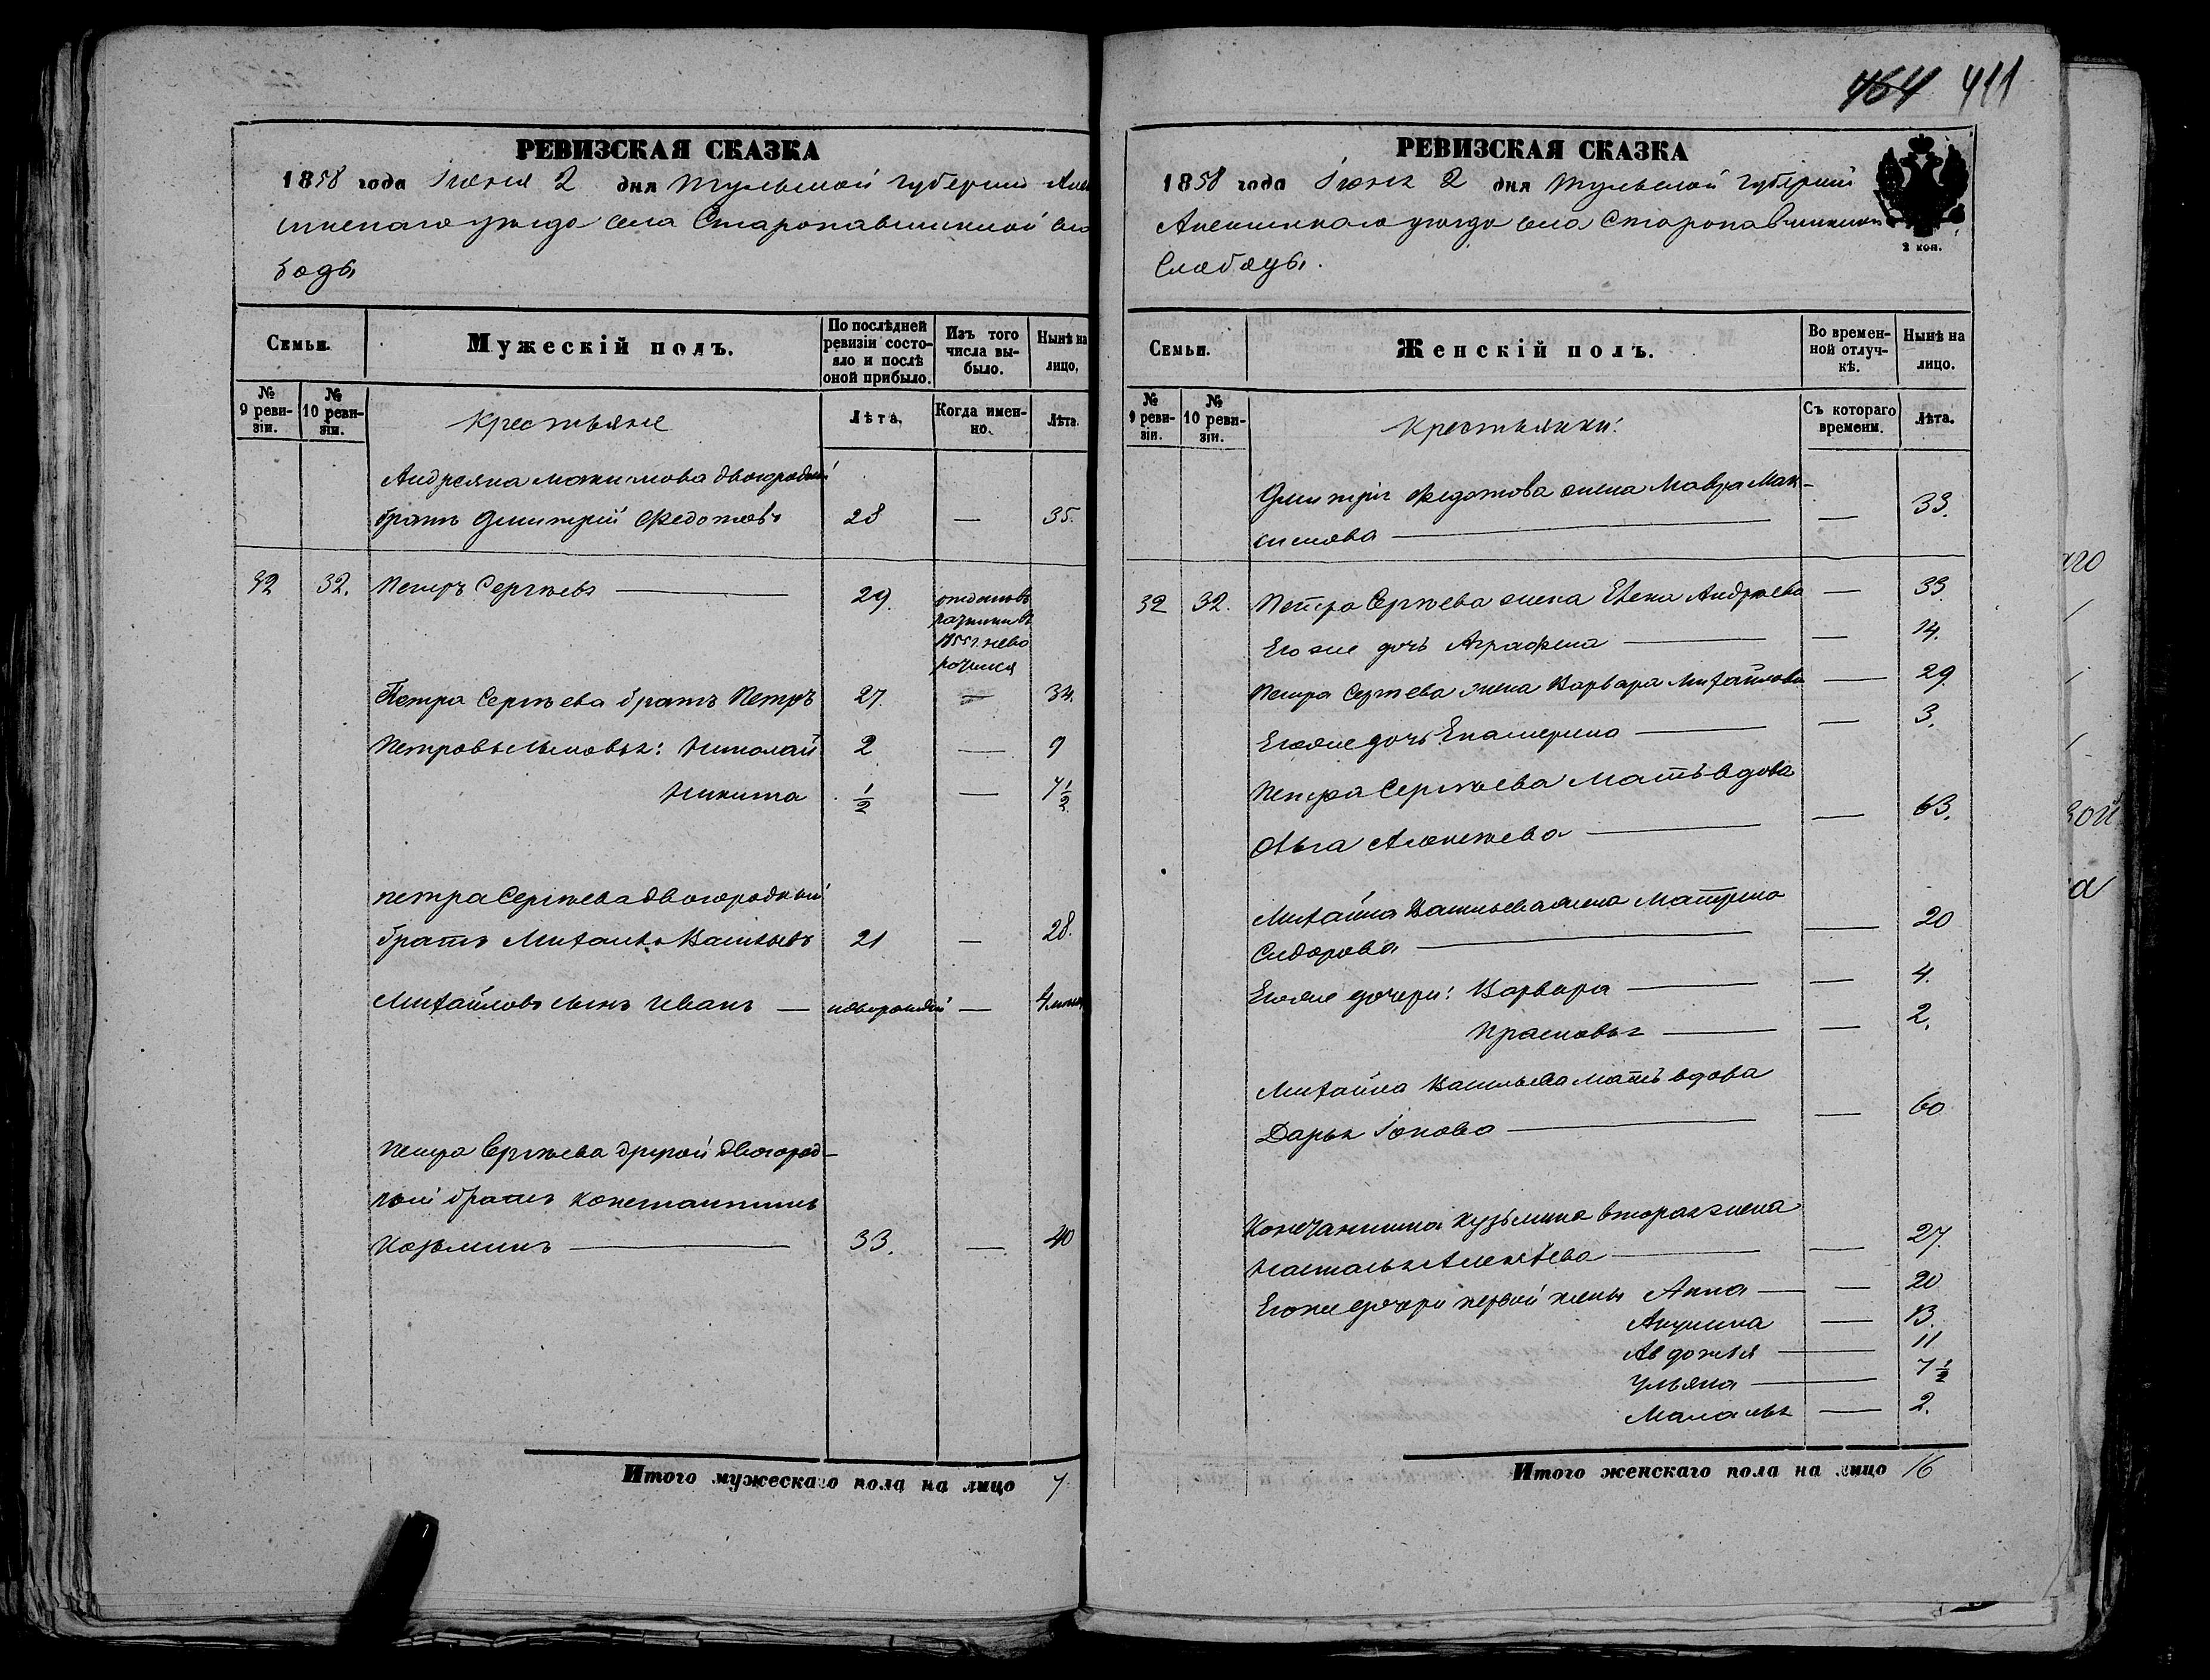 464 411
РЕВИЗСКАЯ СКАЗКА
1858 года Іюня 2 дня Тульской губерніи Алек
синскаго уѣзда села Старопавшинской сло
боды
Семьи.
Мужескій полъ.
По послѣдней ревизіи состояло и послѣ оной прибыло.
Изъ того числа выбыло.
Нынѣ на лицо.
№ 9 ревизіи.
№ 10 ревизіи.
Крестьяне
Лѣта.
Когда именно.
Лѣта.
Андреяна Максимова двоюродный
братъ Дмитрій Федотовъ 28 — 35.
32 32. Петръ Сергѣевъ 29. отданъ въ
ратники въ
1855 г. нево
ротился
Петра Сергѣева братъ Петръ 27. — 34.
Петровы сыновья: Николай 2 — 9
Никита ½ — 7½
Петра Сергѣева двоюродный
братъ Михаила Васильевъ 21 — 28.
Михайловъ сынъ Иванъ — новорожден — 4
Петра Сргѣева другой двоюрод-
ной братъ Константинъ
Козьминъ 33. — 40
Итого мужескаго пола на лицо 7
РЕВИЗСКАЯ СКАЗКА
1858 года Іюня 2 дня Тульской губерніи
Алексинскаго уѣзда села Старопавшинской
Слободы.
2 коп.
Семьи.
Женскій полъ.
Во временной отлучкѣ.
Нынѣ на лицо.
№ 9 ревизіи.
№ 10 ревизіи.
Крестьянки:
Съ котораго времени.
Лѣта.
Дмитрія Федотова жена Мавра Мак-
симова — 33.
32 32. Петра Сергѣева жена Елена Андрѣева — 33
Его же дочь Аграфена — 14.
Петра Сергѣева жена Варвара Михайлова — 29.
Его же дочь Екатерина — 3.
Петра Сергѣева Мать вдова
Ольга Алексѣева — 63.
Михайла Васильева жена Матрена
Сидорова — 20
Его же дочери: Варвара — 4.
Прасковья — 2.
Михайла Васильева мать вдова
Дарья Іонова — 60
Констанина Кузьмина вторая жена
Наталья Алексѣева — 27.
Его же дочери первой жены Анна — 20
Акулина — 13.
Авдотья — 11
Ульяна — 7½
Маланья — 2.
Итого женскаго пола на лицо 16